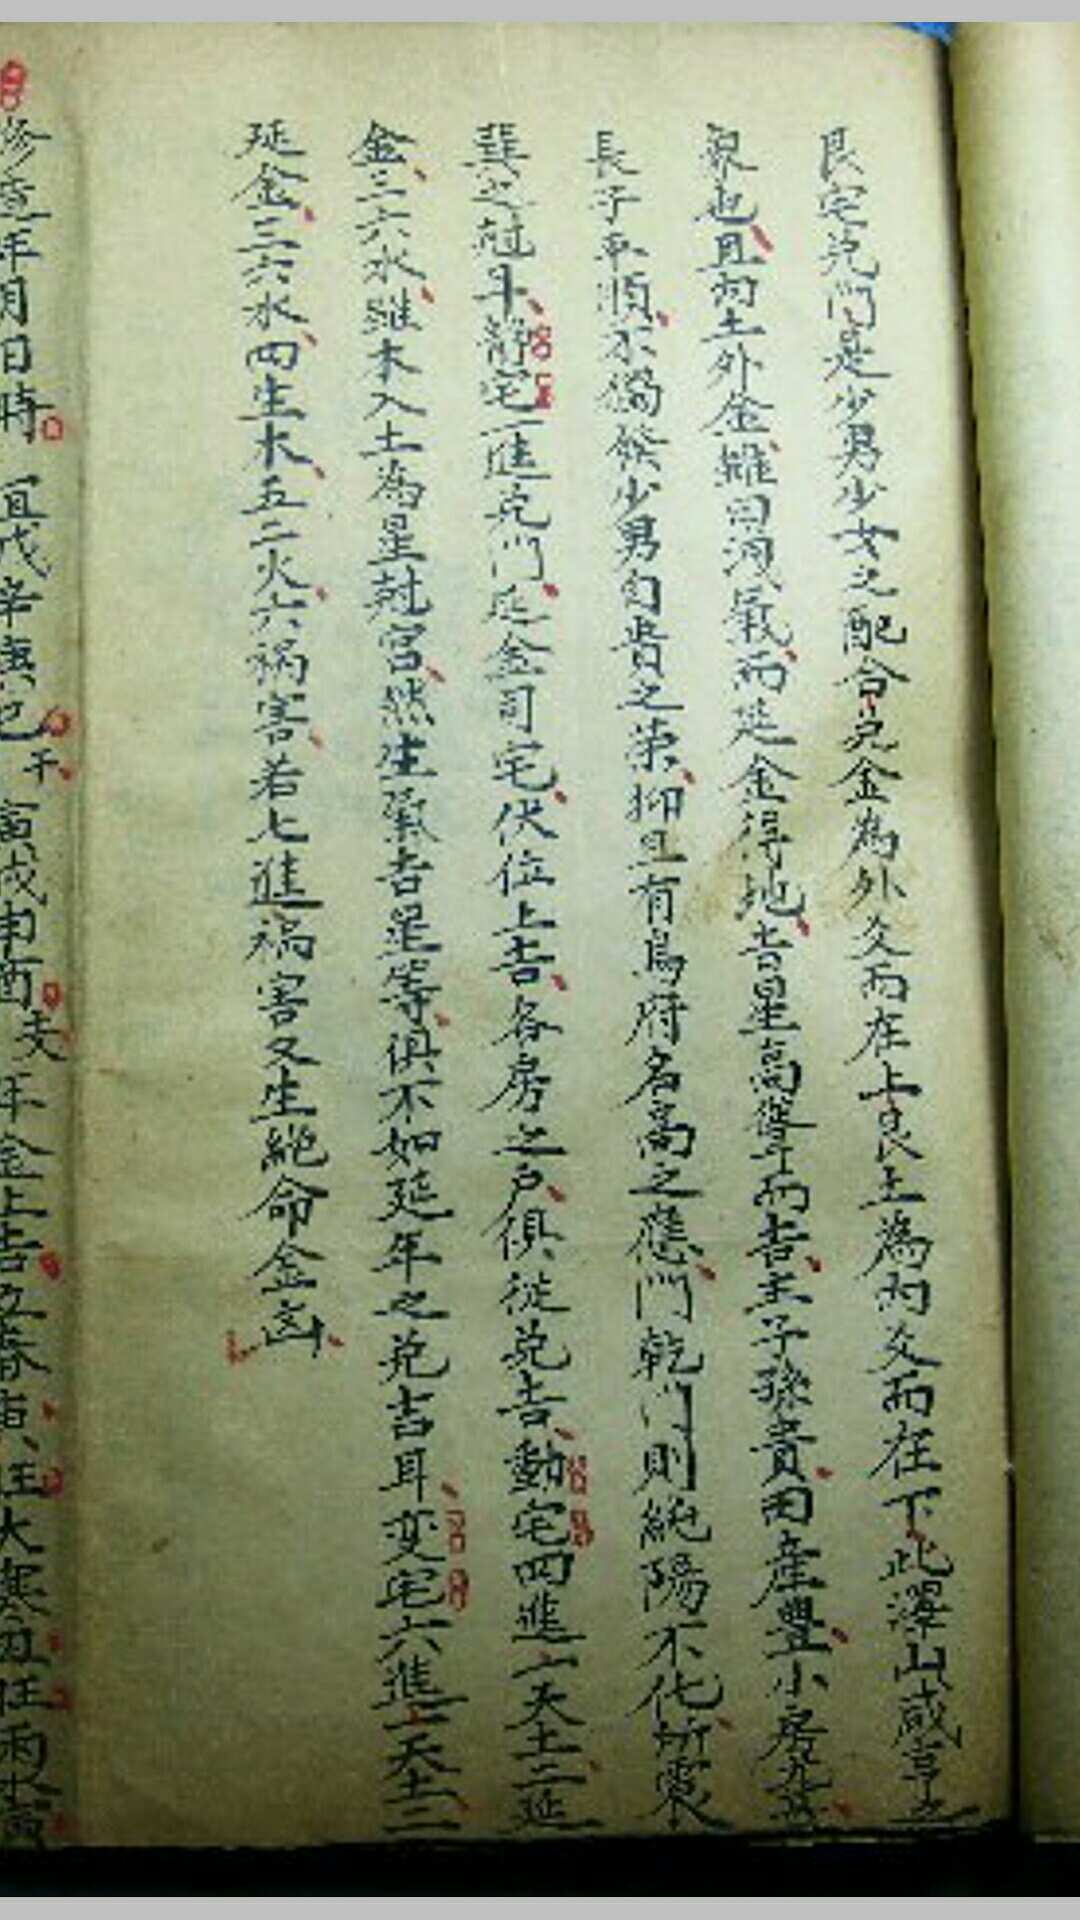 艮宅兑門是少男少女之配合兑金為外爻而在上艮土為内爻而在下此澤山咸亨之
象也且内土外金雖曰洩氣而延金得地吉星高聳而吉主子孫貴而産豐小房尤益
長子平順不獨發少男白眷之荣抑且有烏府名高之應門乾門則純陽不化所衷
之尅斗静宅一進兑門延金司宅伏位上吉各房之户俱從兑吉動宅四進一天土二延
金三六水雖木入土為星尅宫然生氣吉星等俱不如延年之兑吉耳变宅六進一天土二
延金三六水四生木五二火六禍害若七進禍害又生絶命金凶
修造年月日時宜戊辛庚也
寅戌申酉
年金上吉立春
旺大寒
旺雨水寅